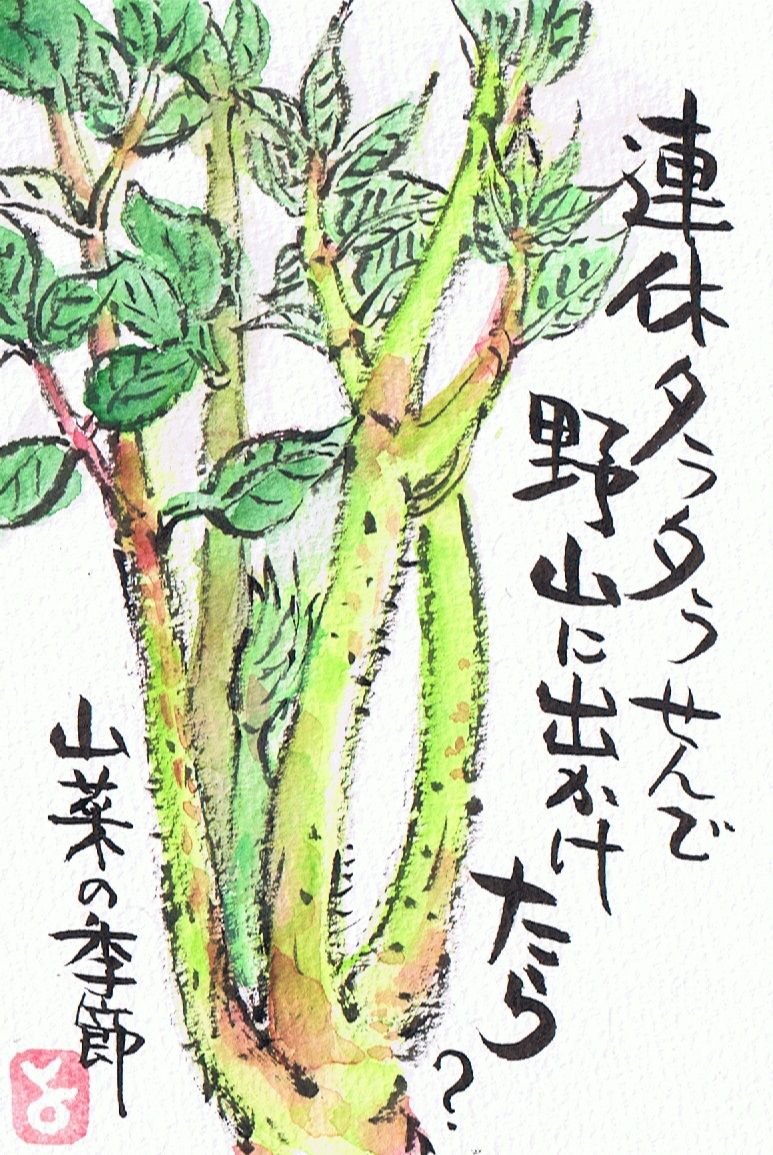 連休タラタラせんで
野山に出かけ
たら
?
山菜の季節
よ